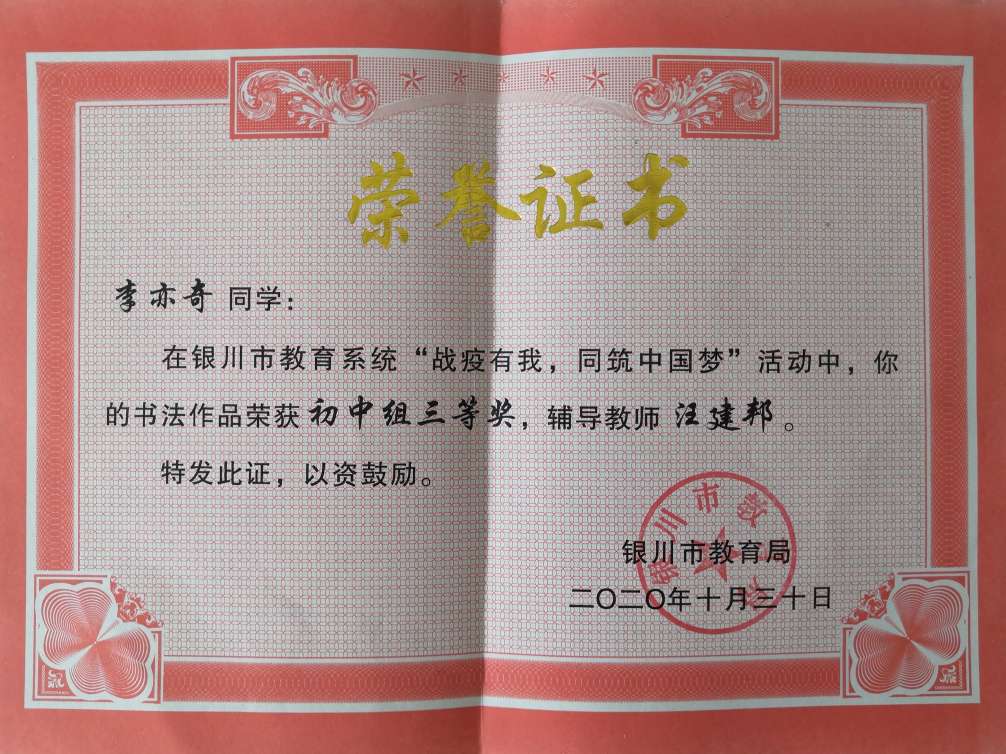 荣誉证书
李亦奇 同学：
在银川市教育系统“战疫有我，同筑中国梦”活动中，你
的书法作品荣获 初中组三等奖，辅导教师 汪建邦 。
特发此证，以资鼓励。
银川市教育局
银川市教育局
二〇二〇年十月三十日